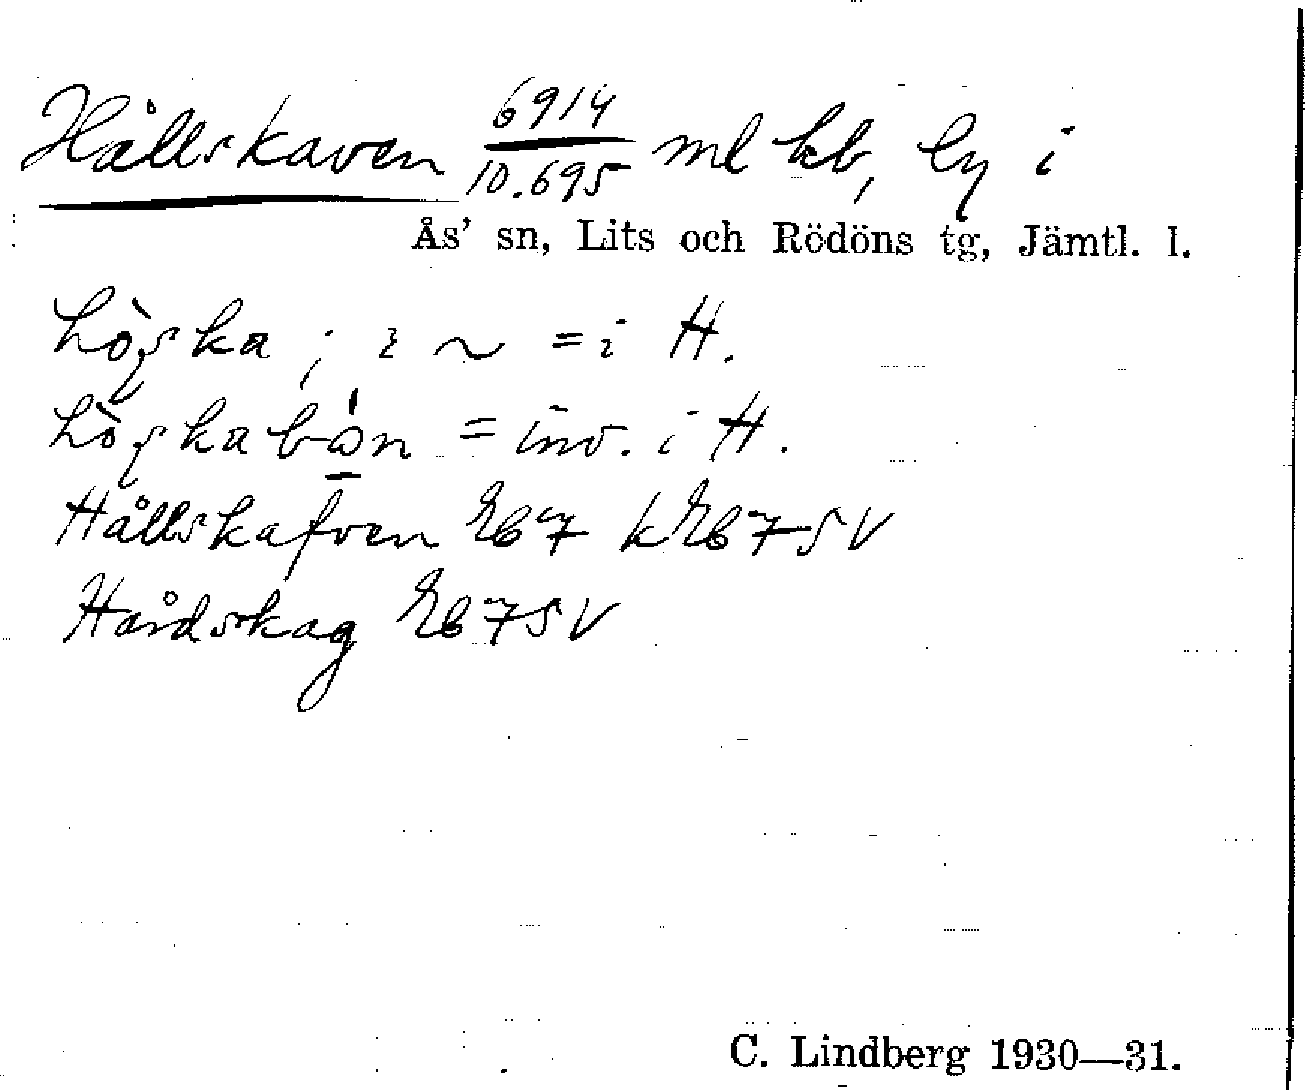 Hållskaven 6914/10.695 ml kb, by i
Ås' sn, Lits och Rödöns tg, Jämtl. l.
; i ~ = i H.
= inv. i H.
Hållskafven Eb 7 k Eb 7 S V
Hårdskag Eb 7 S V
C. Lindberg 1930—31.